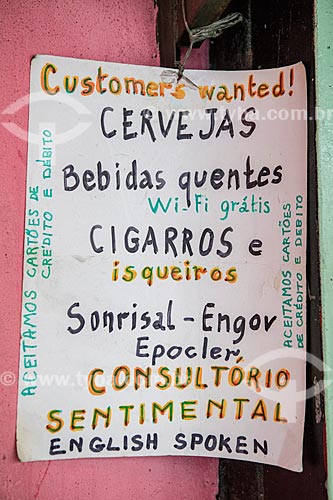 Customers wanted!
CERVEJAS
Bebidas quentes
Wi-Fi grátis
CIGARROS e
isqueiros
Sonrisal - Engov
Epocler
CONSULTÓRIO
SENTIMENTAL
ENGLISH SPOKEN
ACEITAMOS CARTÕES DE
CREDITO E DÉBITO
ACEITAMOS CARTÕES
DE CRÉDITO E DEBITO